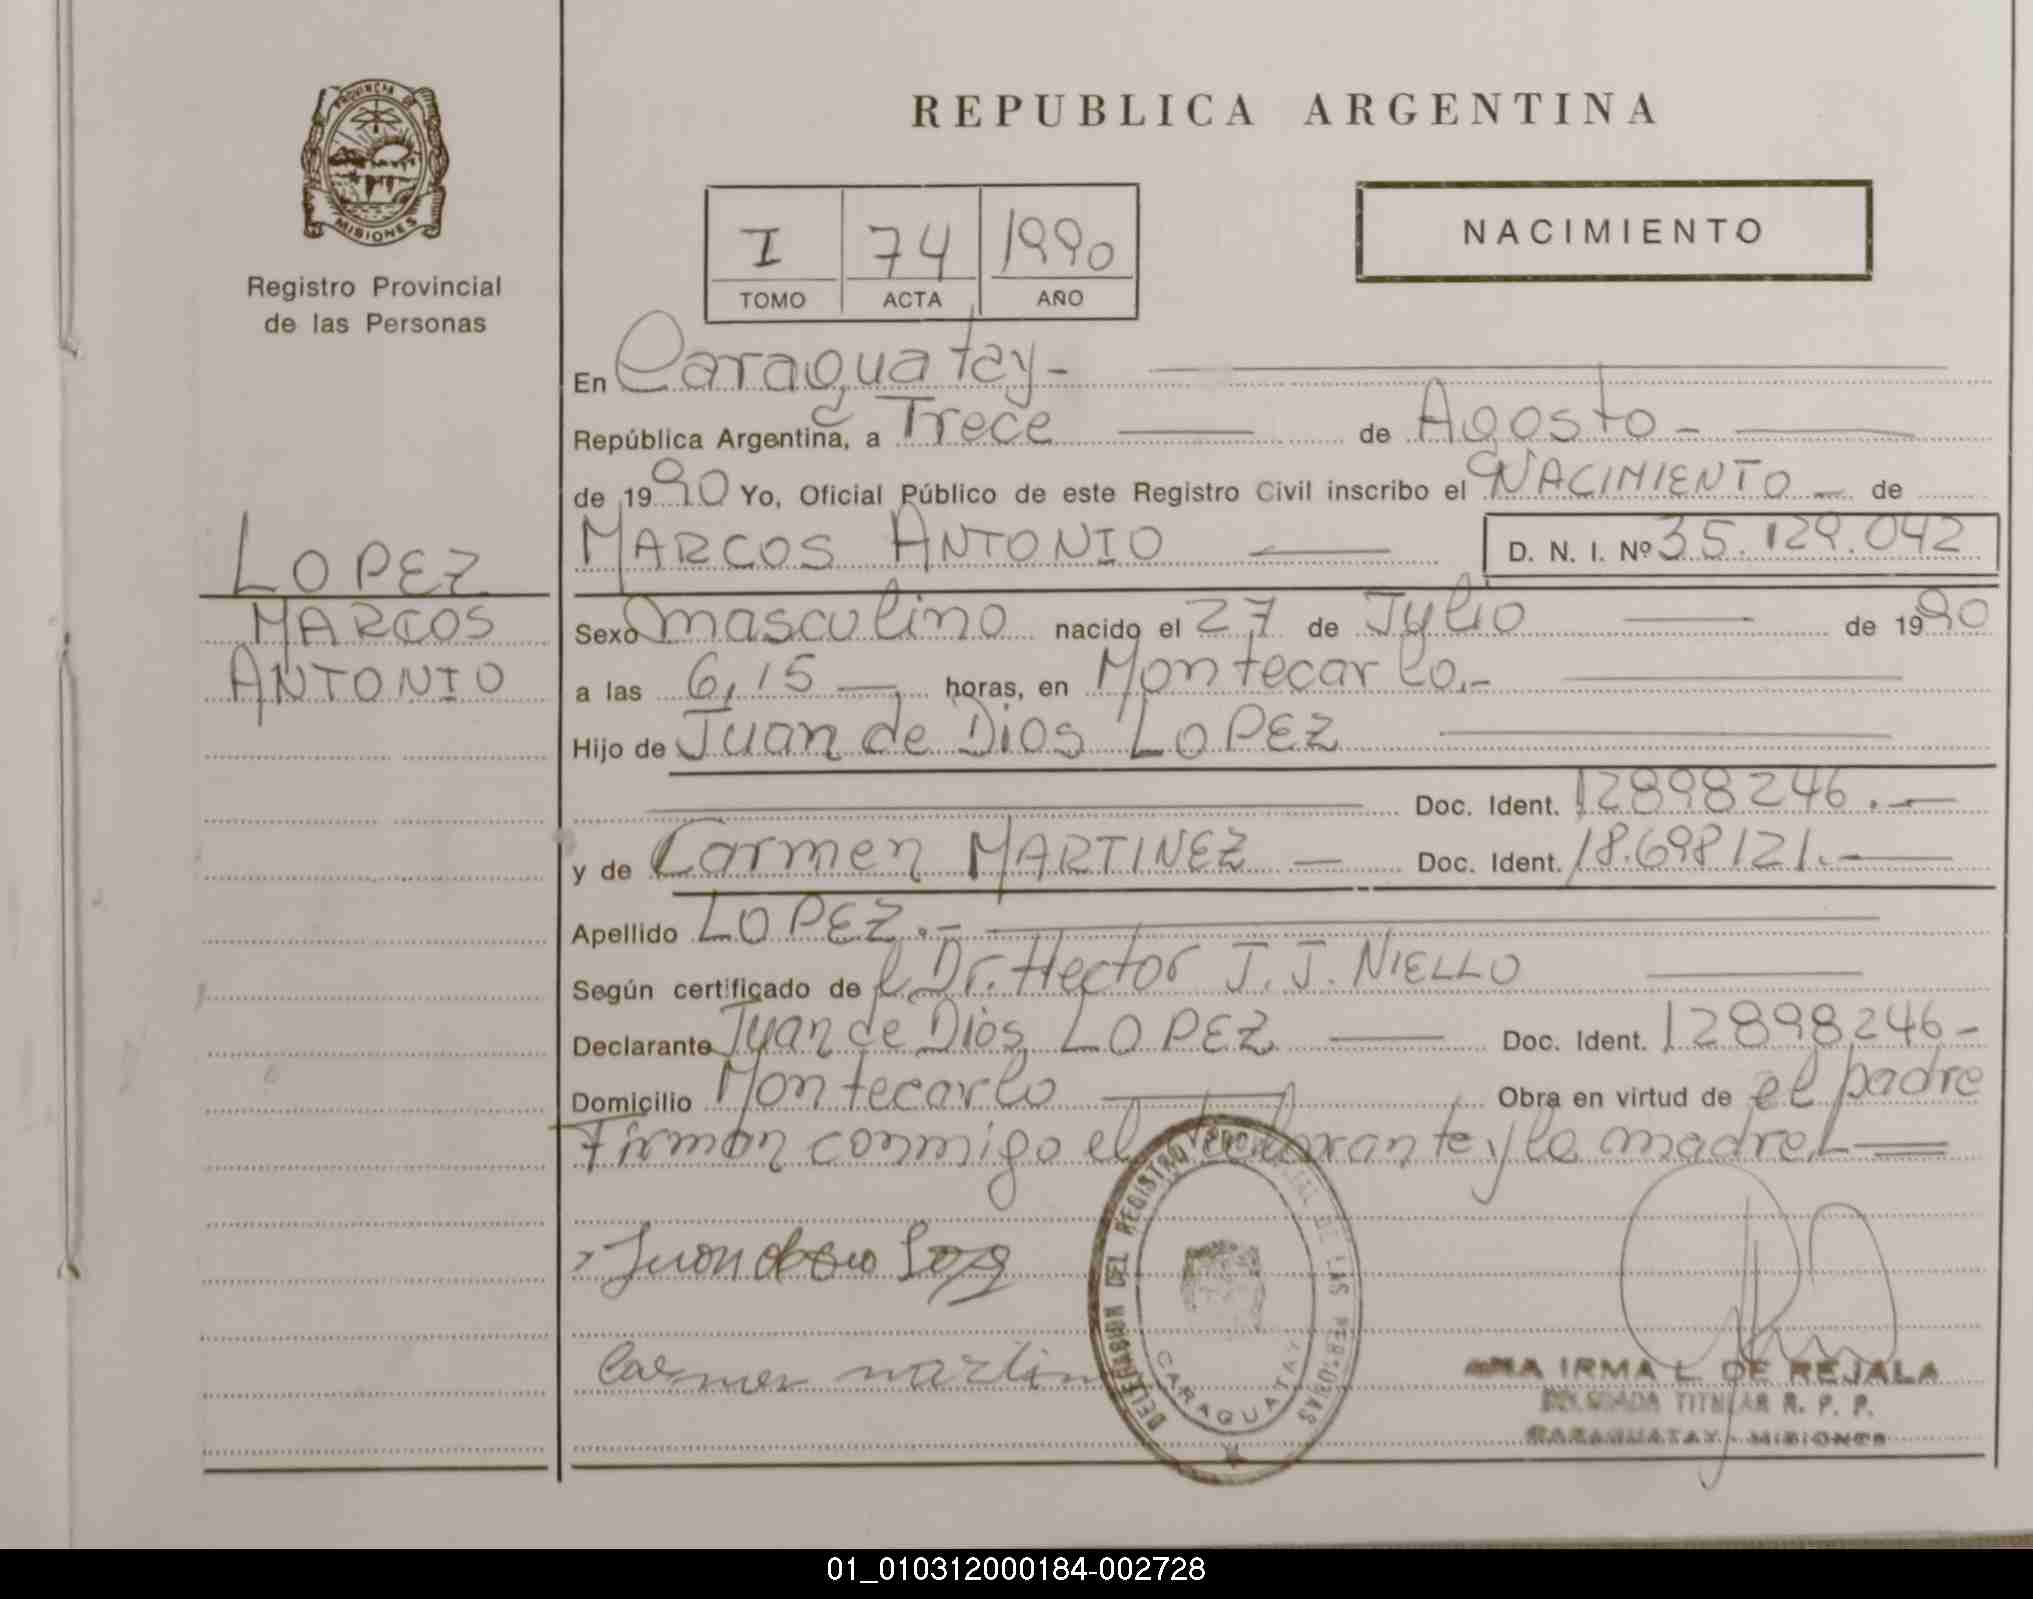 PROVINCIA DE
MISIONES
Registro Provincial
de las Personas
LOPEZ
MARCOS
ANTONIO
REPUBLICA ARGENTINA
I 74 1990
TOMO ACTA AÑO
NACIMIENTO
En Caraguatay.-
República Argentina, a Trece de Agosto.-
de 1990 Yo, Oficial Público de este Registro Civil inscribo el NACIMIENTO - de
MARCOS ANTONIO D. N. I. Nº 35.129.042
Sexo masculino nacido el 27 de Julio de 1990
a las 6,15 horas, en Montecarlo.-
Hijo de Juan de Dios LOPEZ
Doc. Ident. 12898246.-
y de Carmen MARTINEZ - Doc. Ident. 18.698121.-
Apellido LOPEZ.-
Según certificado de l Dr. Hector J. J. NIELLO
Declarante Juan de Dios LOPEZ Doc. Ident. 12898246-
Domicilio Montecarlo Obra en virtud de el padre
Firman conmigo el declarante y la madre.-
Carmen martin
DELEGACION DEL REGISTRO PROVINCIAL DE LAS PERSONAS
CARAGUATAY
ANA IRMA L. DE REJALA
DELEGADA TITULAR R. P. P.
CARAGUATAY - MISIONES
01_010312000184-002728